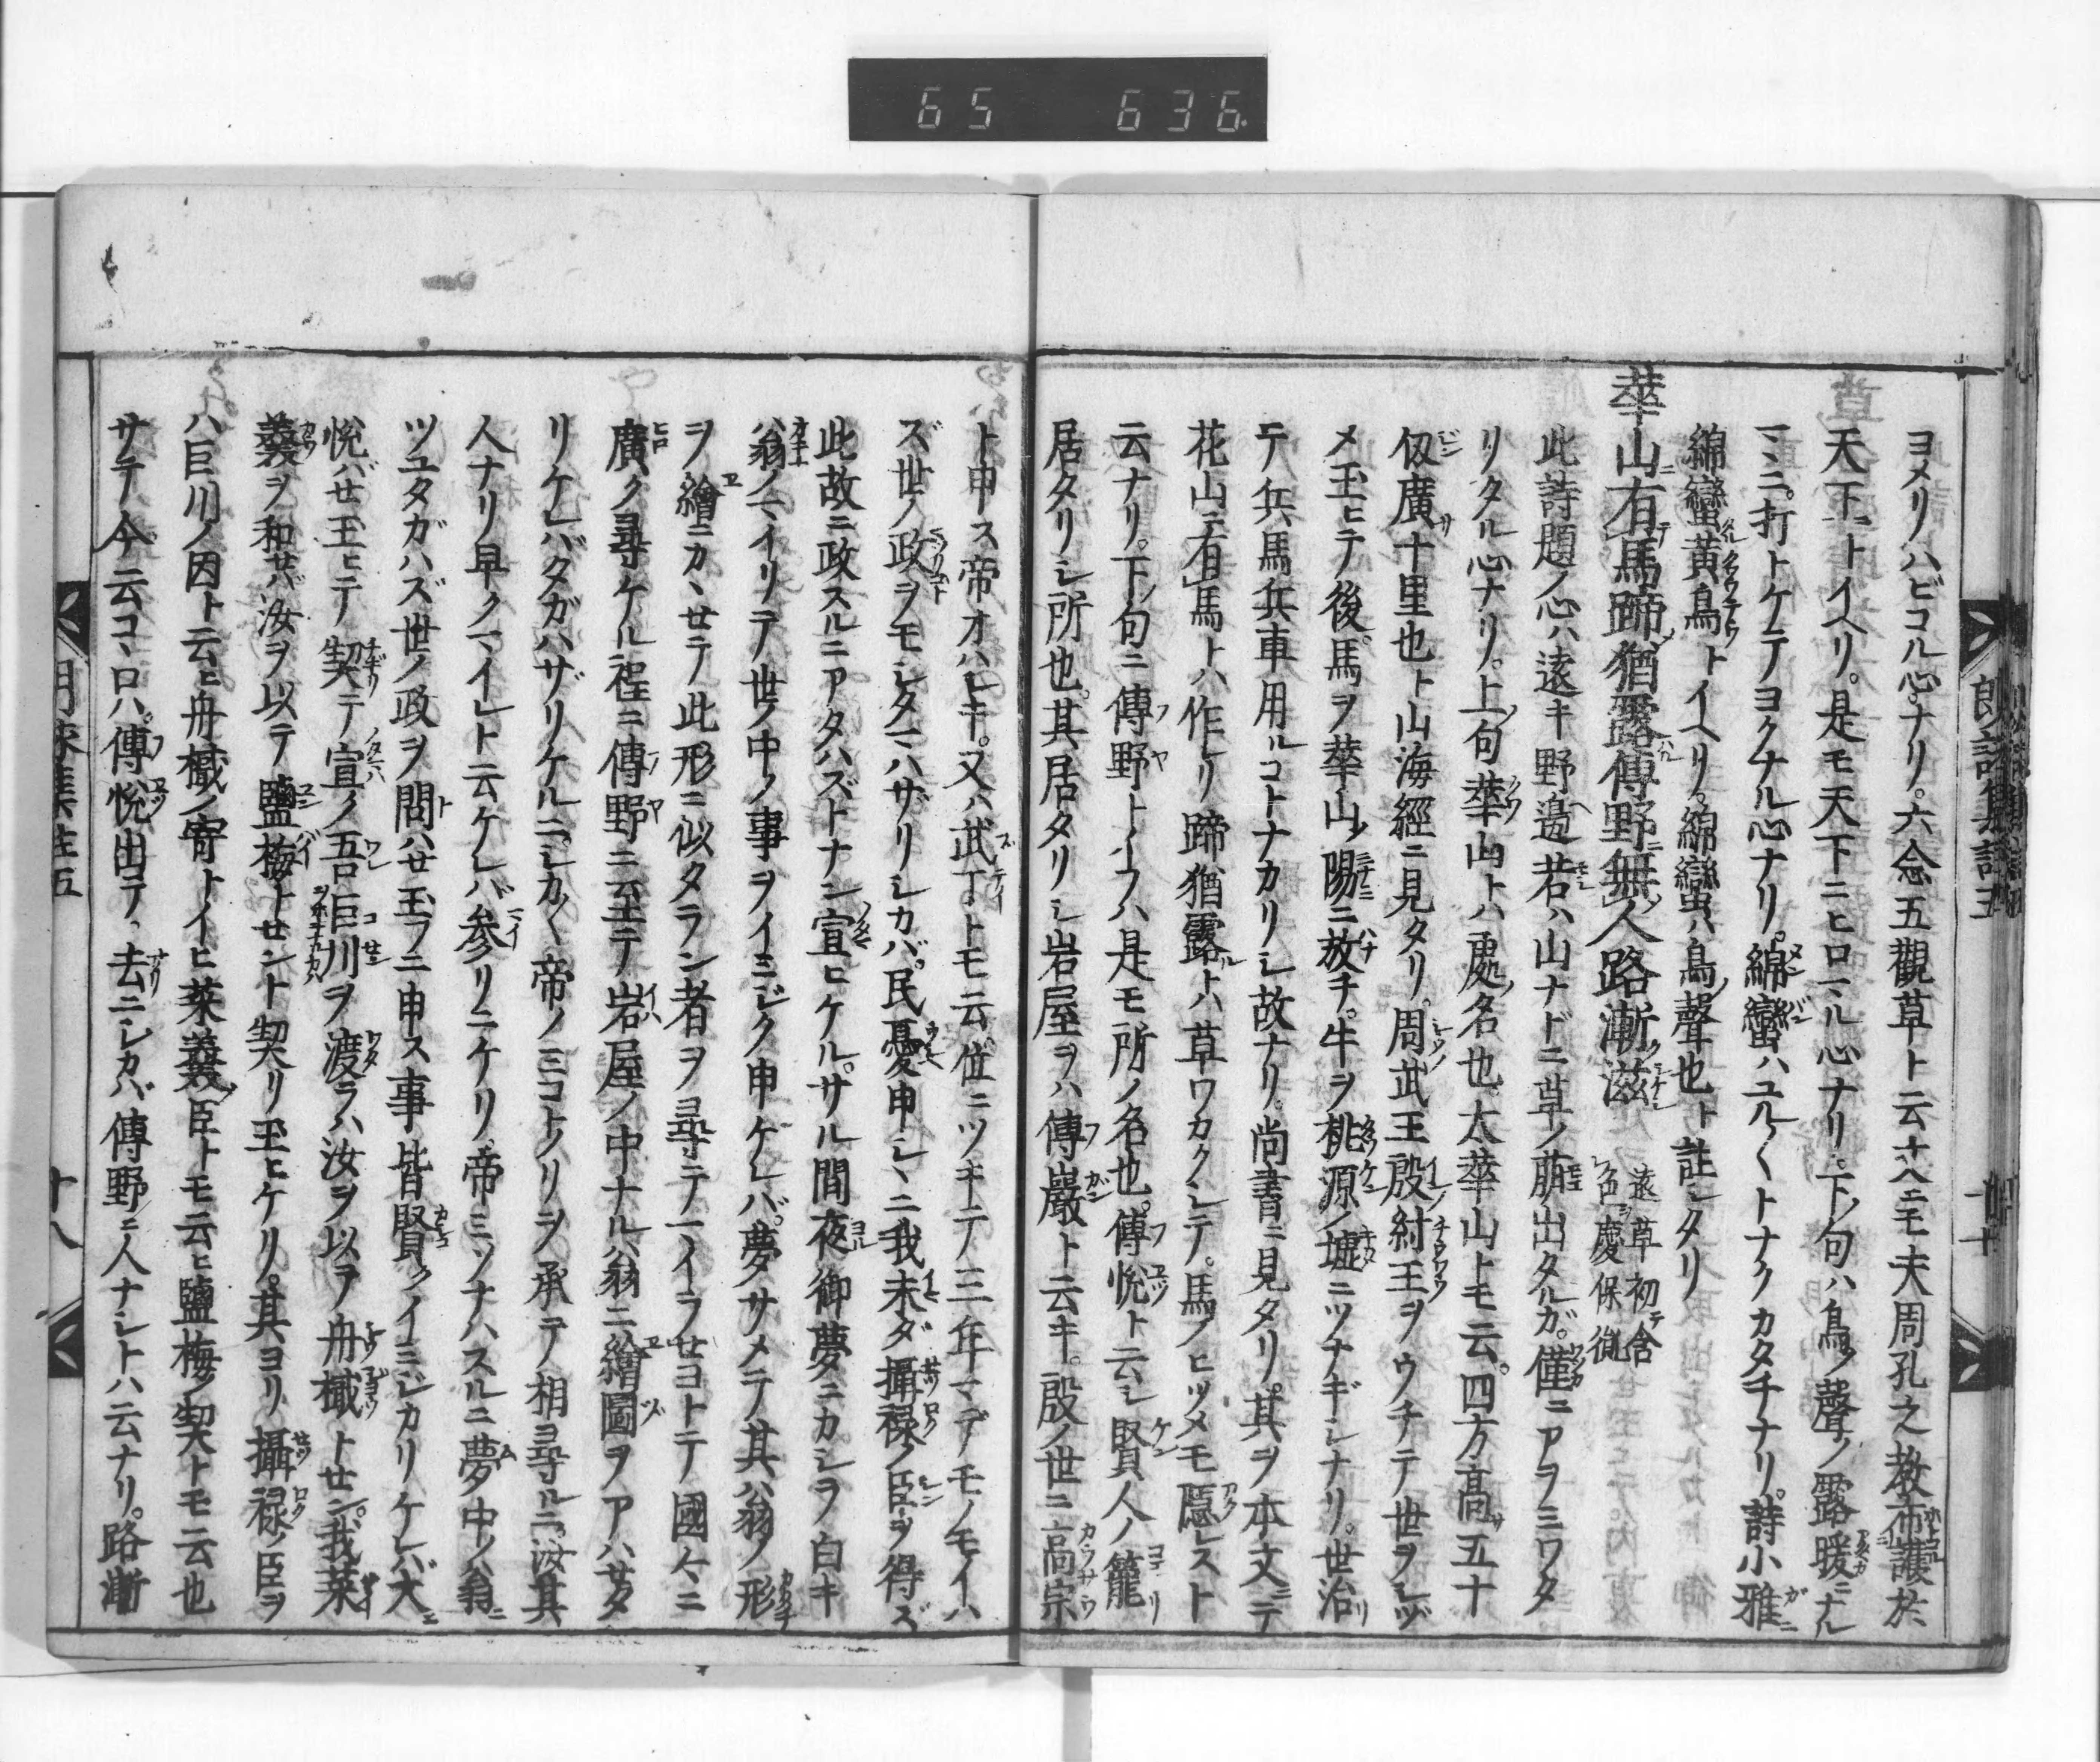 65 636
ヨメリハビコル心ナリ。六念五觀草ト云十八ニモ夫周孔之教布護於
天下ニトイヘリ。是モ天下ニヒロマル心ナリ。下ノ句ハ鳥ノ聲ノ露暖ニナル
マヽニ。打トケテヨクナル心ナリ。綿蠻ハユル〱トナクカタチナリ。詩小雅
綿蠻黄鳥トイヘリ。綿蠻ハ鳥ノ聲也ト註シタリ
華山有馬蹄猶露傅野無人路漸滋 遠草初含色 慶保胤
此詩題ノ心ハ遠キ野邉若ハ山ナドニ草ノ萠出タルガ。僅ニアヲミワタ
リタル心ナリ。上句華山トハ處ノ名也。太華山トモ云。四方高サ五十
仭廣サ十里也ト山海經ニ見タリ。周武王殷紂王ヲウチテ世ヲシヅ
メ玉ヒテ後。馬ヲ華山ノ陽ニ放チ。牛ヲ桃源ノ墟ニツナギシナリ。世治リ
テ兵馬兵車用ルコトナカリシ故ナリ。尚書ニ見タリ。其ヲ本文ニテ
花山ニ有馬トハ作レリ蹄猶露ルトハ草ワカクシテ。馬ノヒヅメモ隱レスト
云ナリ。下ノ句ニ傅野トイフハ是モ所ノ名也。傅悅ト云シ賢人ノ籠
居タリシ所也。其居タリシ岩屋ヲハ傅巖ト云キ。殷ノ世ニ高宗
ト申ス帝オハシキ。又ハ武丁トモ云位ニツキテ三年マデモノモイハ
ズ世ノ政ヲモシタマハザリシカバ。民憂申シヽニ我未ダ攝禄ノ臣ヲ得ズ
此故ニ政スルニアタハズトナン宣ヒケル。サル間夜御夢ニカシラ白キ
翁ノマイリテ世ノ中ノ事ヲイミジク申ケレバ。夢サメテ其ノ翁ノ形
ヲ繪ニカヽセテ此形ニ似タラン者ヲ尋テマイラセヨトテ國々ニ
廣ク尋ケル程ニ傅野ニ至テ岩屋ノ中ナル翁ニ繪圖ヲアハセタ
リケレバタガハザリケルニ。シカ〱帝ノミコトノリヲ承テ相尋ルニ。汝其
人ナリ早クマイレト云ケレバ參リニケリ。帝ミソナハスルニ夢中ノ翁ニ
ツユタガハズ世ノ政ヲ問ハセ玉フニ申ス事皆賢クイミジカリケレバ大ニ
悅バセ玉ヒテ契テ宣ノ吾巨川ヲ渡ラハ汝ヲ以ヲ舟檝トセン。我菜
羹ヲ和セバ汝ヲ以テ鹽梅トセント契リ玉ヒケリ。其ヨリ攝禄ノ臣ヲ
ハ巨川ノ因ト云ヒ舟檝ノ寄トイヒ菜羹ノ臣トモ云ヒ鹽梅ノ契トモ云也
サテ今云コヽロハ。傅悅出テ、去ニシカバ傅野ニ人ナシトハ云ナリ。路漸